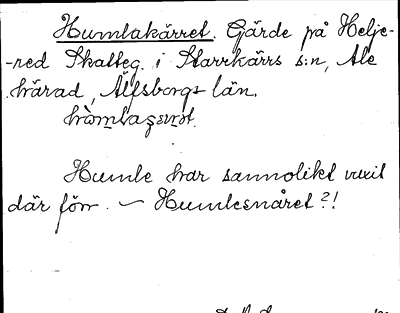 Humlakärret. Gärde på Helje-
-red Skatteg. i Starrkärrs s:n, Ale
härad, Älfsborgs län.
Humle har sannolikt vuxit
där förr. – Humlesnåret?!